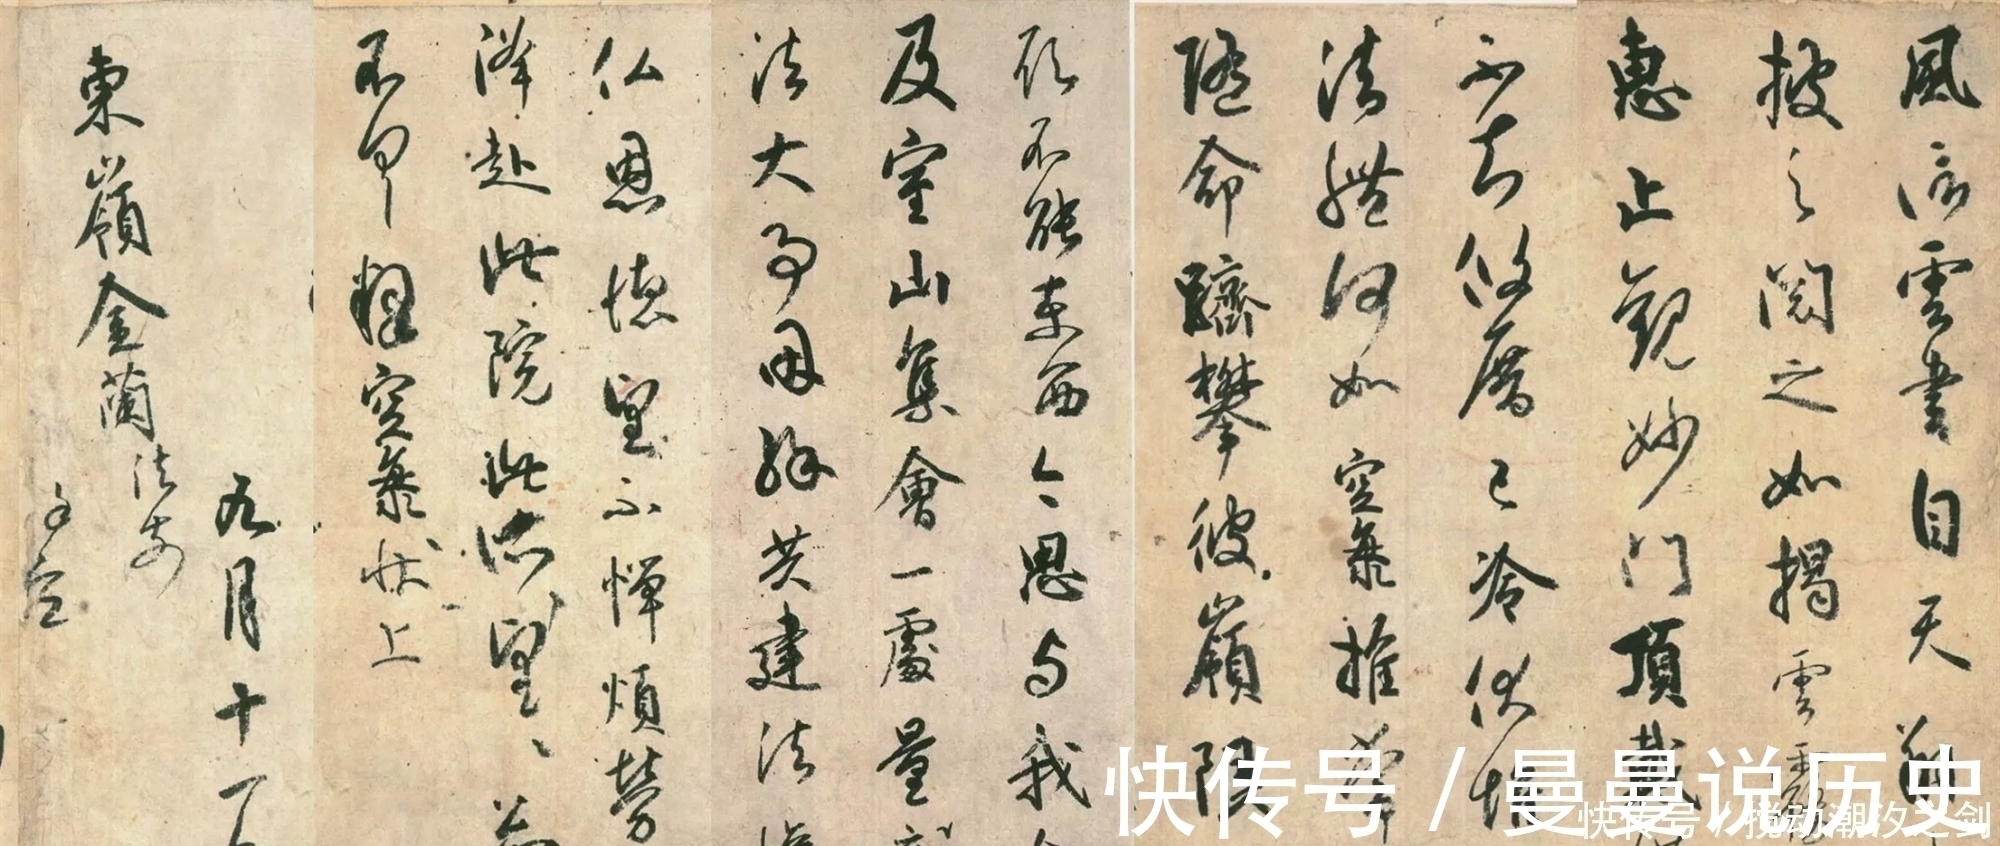 風信雲書自天翔
披之閱之如揭雲霧
惠止觀妙門頂戴
不知攸厝已冷伏惟
法體何如空海推常
隨命躋攀彼嶺限
願不能東西今思与我
及室山集會一處量商
法大事因縁共建法幢
仏恩德望不憚煩勞
降赴此院此所望々
不具釋空海状上
九月十一
東嶺金蘭法前
謹空
快传号/曼曼说历史
快传号/搅动潮汐之剑